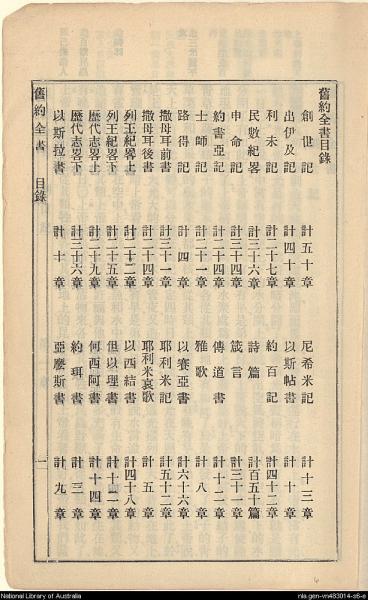 舊約全書目錄
創世記 計五十章 尼希米記 計十三章
出伊及記 計四十章 以斯帖書 計十章
利未記 計二十七章 約百記 計四十二章
民數紀畧 計三十六章 詩篇 計百五十篇
申命記 計三十四章 箴言 計三十一章
約書亞記 計二十四章 傳道書 計十二章
士師記 計二十一章 雅歌 計八章
路得記 計四章 以賽亞書 計六十六章
撒母耳前書 計三十一章 耶利米記 計五十二章
撒母耳後書 計二十四章 耶利米哀歌 計五章
列王紀畧上 計二十二章 以西結書 計四十八章
列王紀畧下 計二十五章 但以理書 計十二章
歷代志畧上 計二十九章 何西阿書 計十四章
歷代志畧下 計三十六章 約珥書 計三章
以斯拉書 計十章 亞麽斯書 計九章
舊約全書 目錄 一
National Library of Australia
nla.gen-vn483014-s6-e